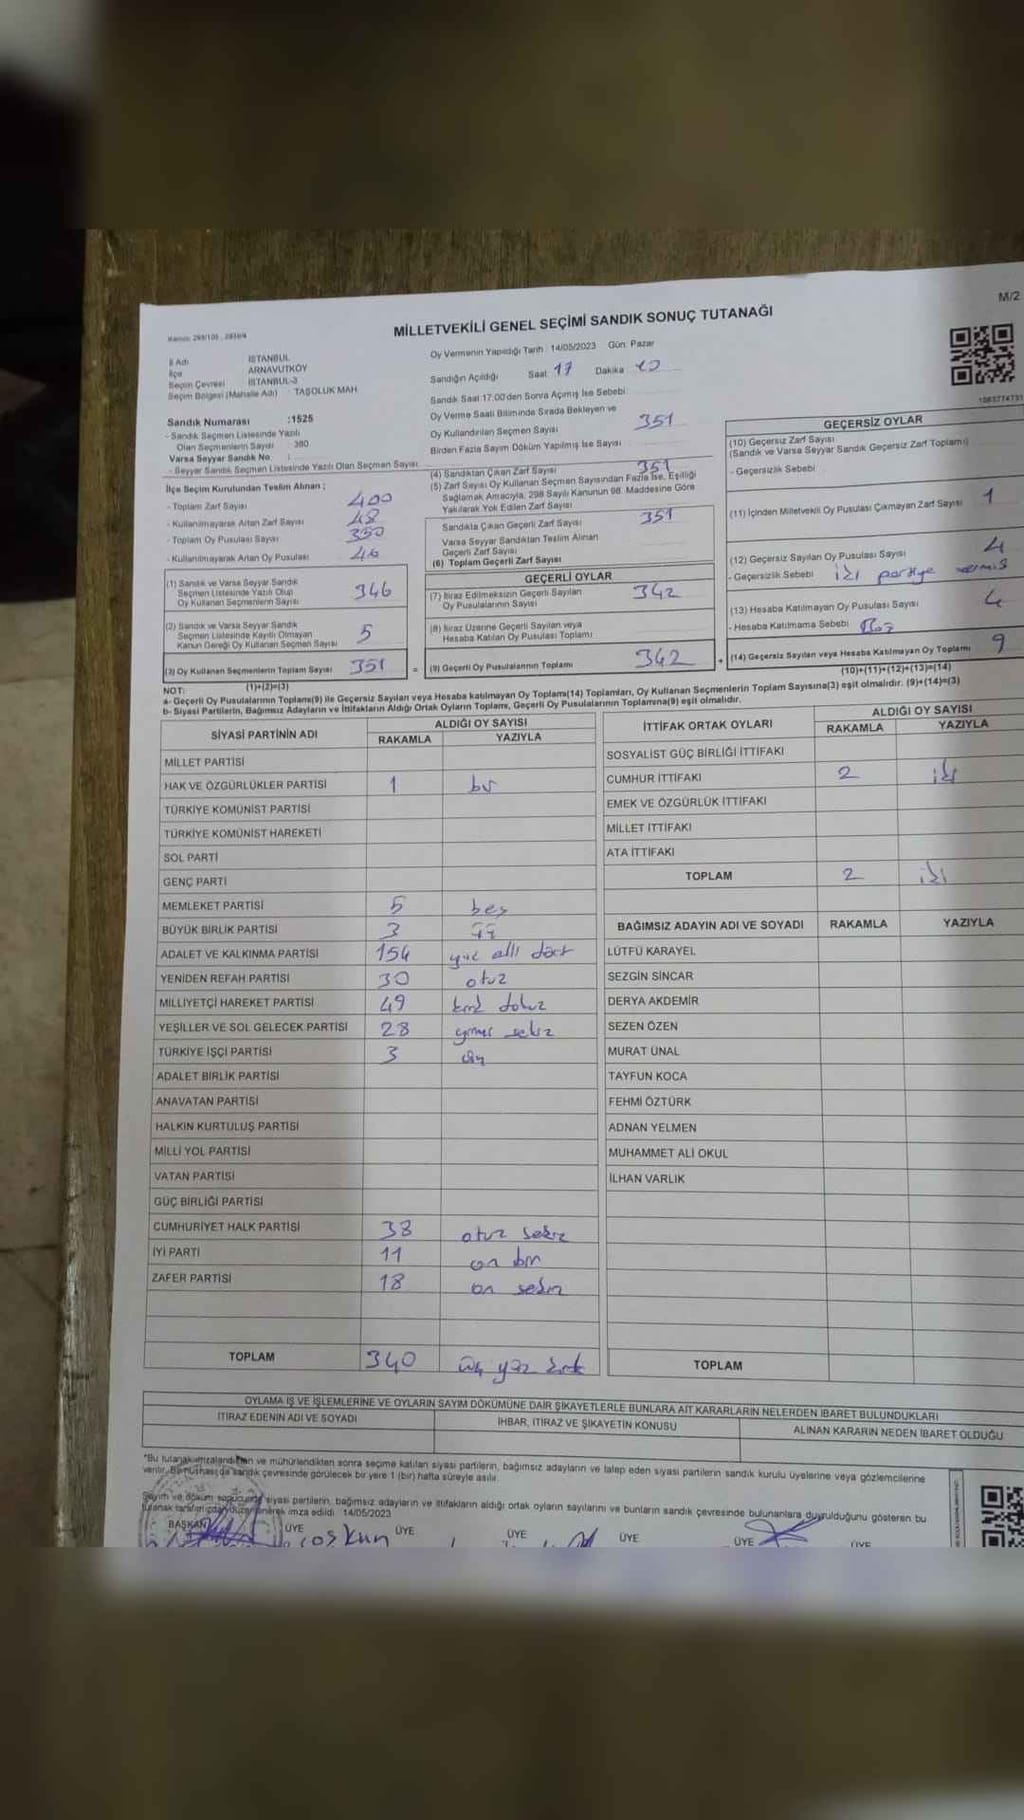 M/2
MİLLETVEKİLİ GENEL SEÇİMİ SANDIK SONUÇ TUTANAĞI
İl Adı İSTANBUL
İlçe ARNAVUTKÖY
Seçim Çevresi İSTANBUL-3
Seçim Bölgesi (Mahalle Adı) TAŞOLUK MAH.
Oy Vermenin Yapıldığı Tarih : 14/05/2023 Gün: Pazar
Sandığın Açıldığı Saat 17 Dakika
Sandık Saat 17.00'den Sonra Açılmış İse Sebebi
Sandık Numarası :1525
- Sandık Seçmen Listesinde Yazılı
Olan Seçmenlerin Sayısı : 380
Varsa Seyyar Sandık No :
- Seyyar Sandık Seçmen Listesinde Yazılı Olan Seçmen Sayısı
Oy Verme Saati Bitiminde Sırada Bekleyen ve
Oy Kullandırılan Seçmen Sayısı 351
Birden Fazla Sayım Döküm Yapılmış İse Sayısı
İlçe Seçim Kurulundan Teslim Alınan :
- Toplam Zarf Sayısı 400
- Kullanılmayarak Artan Zarf Sayısı 48
- Toplam Oy Pusulası Sayısı 350
- Kullanılmayarak Artan Oy Pusulası 46
(1) Sandık ve Varsa Seyyar Sandık
Seçmen Listesinde Yazılı Olup
Oy Kullanan Seçmenlerin Sayısı 346
(2) Sandık ve Varsa Seyyar Sandık
Seçmen Listesinde Kayıtlı Olmayan
Kanun Gereği Oy Kullanan Seçmen Sayısı 5
(3) Oy Kullanan Seçmenlerin Toplam Sayısı 351
(1)+(2)=(3)
(4) Sandıktan Çıkan Zarf Sayısı 351
(5) Zarf Sayısı Oy Kullanan Seçmen Sayısından Fazla İse, Eşitliği
Sağlamak Amacıyla, 298 Sayılı Kanunun 98. Maddesine Göre
Yakılarak Yok Edilen Zarf Sayısı
Sandıkta Çıkan Geçerli Zarf Sayısı 351
Varsa Seyyar Sandıktan Teslim Alınan
Geçerli Zarf Sayısı
(6) Toplam Geçerli Zarf Sayısı
GEÇERLİ OYLAR
(7) İtiraz Edilmeksizin Geçerli Sayılan
Oy Pusulalarının Sayısı 342
(8) İtiraz Üzerine Geçerli Sayılan veya
Hesaba Katılan Oy Pusulası Toplamı
= (9) Geçerli Oy Pusulalarının Toplamı 342 +
GEÇERSİZ OYLAR
(10) Geçersiz Zarf Sayısı
(Sandık ve Varsa Seyyar Sandık Geçersiz Zarf Toplamı)
- Geçersizlik Sebebi
(11) İçinden Milletvekili Oy Pusulası Çıkmayan Zarf Sayısı 1
(12) Geçersiz Sayılan Oy Pusulası Sayısı 4
- Geçersizlik Sebebi iki partiye vermiş
(13) Hesaba Katılmayan Oy Pusulası Sayısı 4
- Hesaba Katılmama Sebebi Boş
(14) Geçersiz Sayılan veya Hesaba Katılmayan Oy Toplamı 9
(10)+(11)+(12)+(13)=(14)
NOT:
a- Geçerli Oy Pusulalarının Toplamı(9) ile Geçersiz Sayılan veya Hesaba katılmayan Oy Toplamı(14) Toplamları, Oy Kullanan Seçmenlerin Toplam Sayısına(3) eşit olmalıdır. (9)+(14)=(3)
b- Siyasi Partilerin, Bağımsız Adayların ve İttifakların Aldığı Ortak Oyların Toplamı, Geçerli Oy Pusulalarının Toplamına(9) eşit olmalıdır.
SİYASİ PARTİNİN ADI ALDIĞI OY SAYISI
RAKAMLA YAZIYLA
MİLLET PARTİSİ
HAK VE ÖZGÜRLÜKLER PARTİSİ 1 bir
TÜRKİYE KOMÜNİST PARTİSİ
TÜRKİYE KOMÜNİST HAREKETİ
SOL PARTİ
GENÇ PARTİ
MEMLEKET PARTİSİ 5 beş
BÜYÜK BİRLİK PARTİSİ 3 üç
ADALET VE KALKINMA PARTİSİ 154 yüz elli dört
YENİDEN REFAH PARTİSİ 30 otuz
MİLLİYETÇİ HAREKET PARTİSİ 49 kırk dokuz
YEŞİLLER VE SOL GELECEK PARTİSİ 28 yirmi sekiz
TÜRKİYE İŞÇİ PARTİSİ 3 üç
ADALET BİRLİK PARTİSİ
ANAVATAN PARTİSİ
HALKIN KURTULUŞ PARTİSİ
MİLLİ YOL PARTİSİ
VATAN PARTİSİ
GÜÇ BİRLİĞİ PARTİSİ
CUMHURİYET HALK PARTİSİ 38 otuz sekiz
İYİ PARTİ 11 on bir
ZAFER PARTİSİ 18 on sekiz
TOPLAM 340 üç yüz kırk
İTTİFAK ORTAK OYLARI ALDIĞI OY SAYISI
RAKAMLA YAZIYLA
SOSYALİST GÜÇ BİRLİĞİ İTTİFAKI
CUMHUR İTTİFAKI 2 iki
EMEK VE ÖZGÜRLÜK İTTİFAKI
MİLLET İTTİFAKI
ATA İTTİFAKI
TOPLAM 2 iki
BAĞIMSIZ ADAYIN ADI VE SOYADI RAKAMLA YAZIYLA
LÜTFÜ KARAYEL
SEZGİN SİNCAR
DERYA AKDEMİR
SEZEN ÖZEN
MURAT ÜNAL
TAYFUN KOCA
FEHMİ ÖZTÜRK
ADNAN YELMEN
MUHAMMET ALİ OKUL
İLHAN VARLIK
TOPLAM
OYLAMA İŞ VE İŞLEMLERİNE VE OYLARIN SAYIM DÖKÜMÜNE DAİR ŞİKAYETLERLE BUNLARA AİT KARARLARIN NELERDEN İBARET BULUNDUKLARI
İTİRAZ EDENİN ADI VE SOYADI İHBAR, İTİRAZ VE ŞİKAYETİN KONUSU ALINAN KARARIN NEDEN İBARET OLDUĞU
*Bu tutanak imzalandıktan ve mühürlendikten sonra seçime katılan siyasi partilerin, bağımsız adayların ve talep eden siyasi partilerin sandık kurulu üyelerine veya gözlemcilerine
verilir. Bir nüshası da sandık çevresinde görülecek bir yere 1 (bir) hafta süreyle asılır.
Sayım ve döküm sonucunda siyasi partilerin, bağımsız adayların ve ittifakların aldığı ortak oyların sayılarını ve bunların sandık çevresinde bulunanlara duyrulduğunu gösteren bu
tutanak tarafımızdan düzenlenerek imza edildi. 14/05/2023
BAŞKAN ÜYE ÜYE ÜYE ÜYE ÜYE ÜYE
coşkun